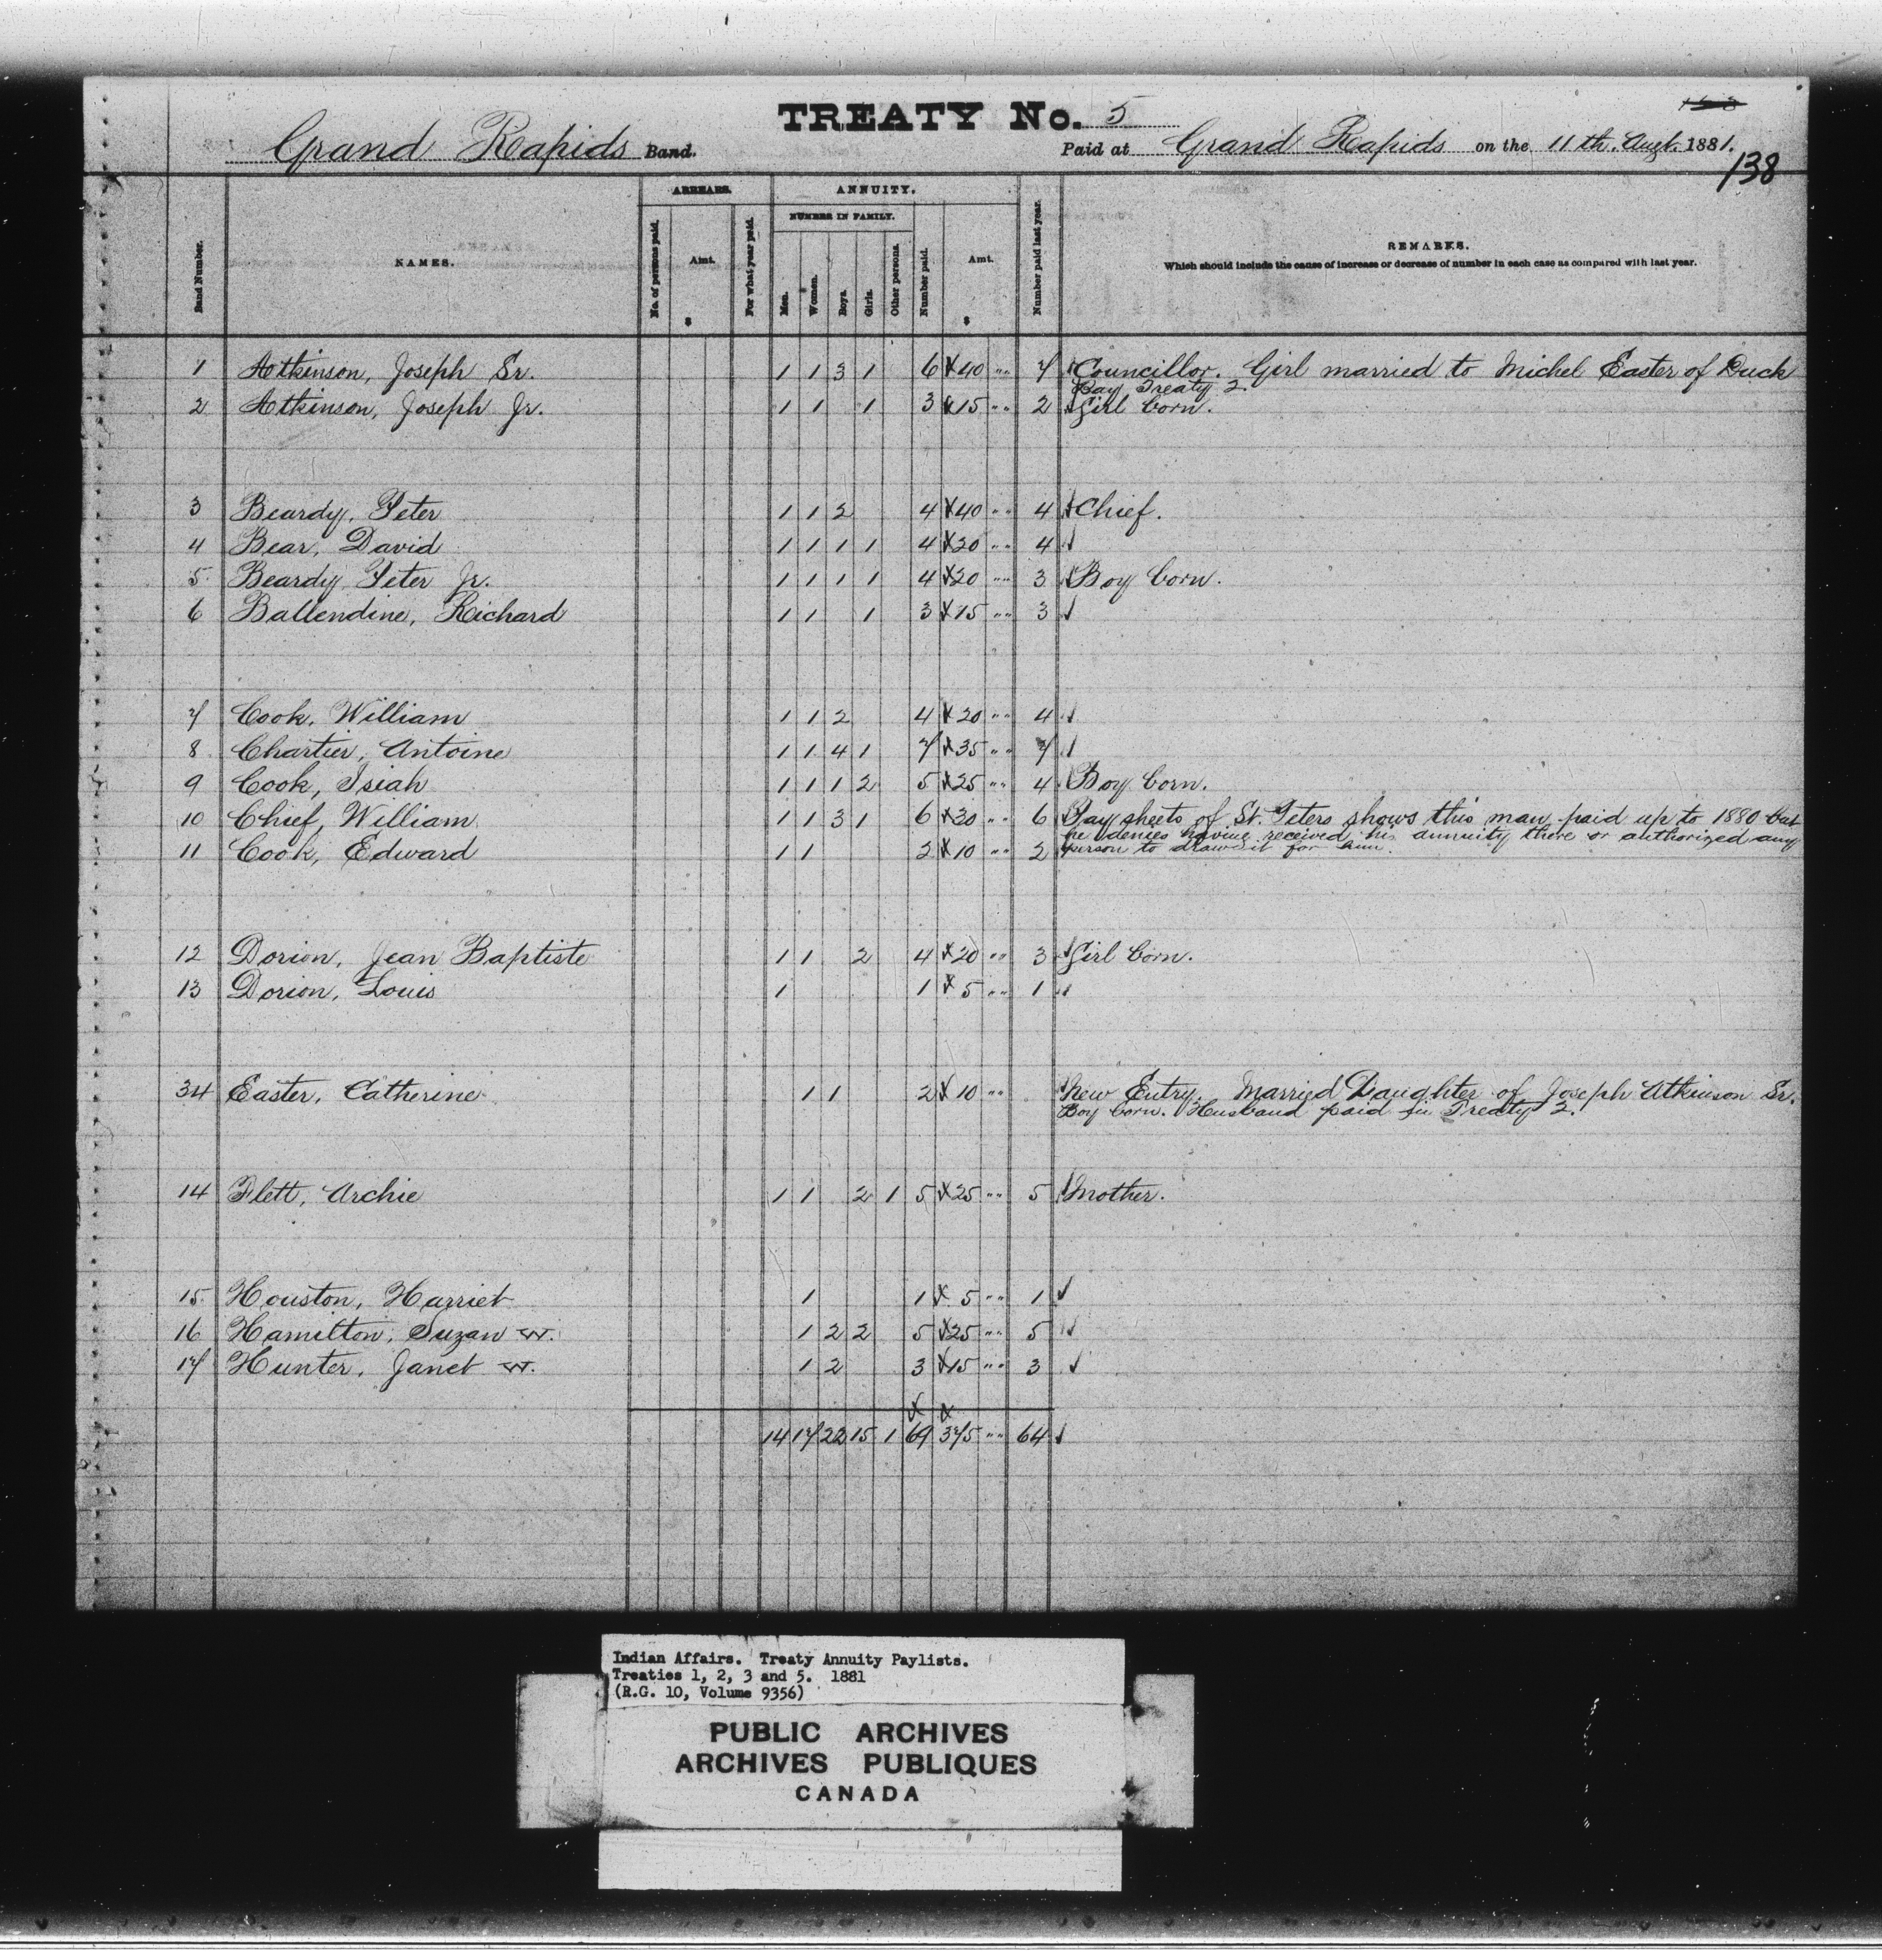 TREATY No. 5
Grand Rapids Band. Paid at Grand Rapids on the 11th. Augt. 1881.
138
Band Number. NAMES. ARREARS. No. of persons paid. Amt. $ For what year paid. ANNUITY. NUMBER IN FAMILY. Men. Women. Boys. Girls. Other persons. Number paid. Amt. $ Number paid last year. REMARKS.
Which should include the cause of increase or decrease of number in each case as compared with last year.
1 Atkinson, Joseph Sr. 1 1 3 1 6 40 " " 7 Councillor. Girl married to Michel Easter of Duck
Bay Treaty 2.
2 Atkinson, Joseph Jr. 1 1 1 3 15 " " 2 Girl born.
3 Beardy, Peter 1 1 2 4 40 " " 4 Chief.
4 Bear, David 1 1 1 1 4 20 " " 4
5 Beardy Peter Jr. 1 1 1 1 4 20 " " 3 Boy born.
6 Ballendine, Richard 1 1 1 3 15 " " 3
7 Cook, William 1 1 2 4 20 " " 4
8 Chartier, Antoine 1 1 4 1 7 35 " " 7
9 Cook, Isiah 1 1 1 2 5 25 " " 4 Boy born.
10 Chief, William 1 1 3 1 6 30 " " 6 Pay sheets of St. Peters shows this man paid up to 1880 but
he denies having received his annuity there or authorized any
11 Cook, Edward 1 1 2 10 " " 2 person to draw it for him.
12 Dorion, Jean Baptiste 1 1 2 4 20 " " 3 Girl born.
13 Dorion, Louis 1 1 5 " " 1
34 Easter, Catherine 1 1 2 10 " " New Entry. Married Daughter of Joseph Atkinson Sr.
Boy born. Husband paid in Treaty 2.
14 Flett, Archie 1 1 2 1 5 25 " " 5 Mother.
15 Houston, Harriet 1 1 5 " " 1
16 Hamilton, Suzan W. 1 2 2 5 25 " " 5
17 Hunter, Janet W. 1 2 3 15 " " 3
14 17 22 15 1 69 375 " " 64
Indian Affairs. Treaty Annuity Paylists.
Treaties 1, 2, 3 and 5. 1881
(R.G. 10, Volume 9356)
PUBLIC ARCHIVES
ARCHIVES PUBLIQUES
CANADA